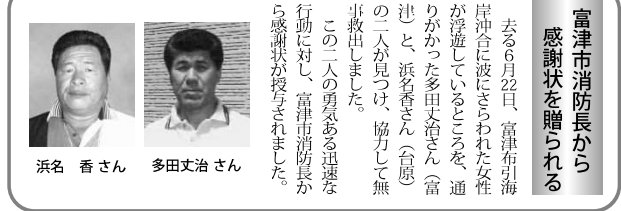 富津市消防長から
感謝状を贈られる
去る6月22日、富津布引海
岸沖合に波にさらわれた女性
が浮遊しているところを、通
りがかった多田丈治さん（富
津）と、浜名香さん（台原）
の二人が見つけ、協力して無
事救出しました。
この二人の勇気ある迅速な
行動に対し、富津市消防長か
ら感謝状が授与されました。
浜名　香 さん
多田丈治 さん